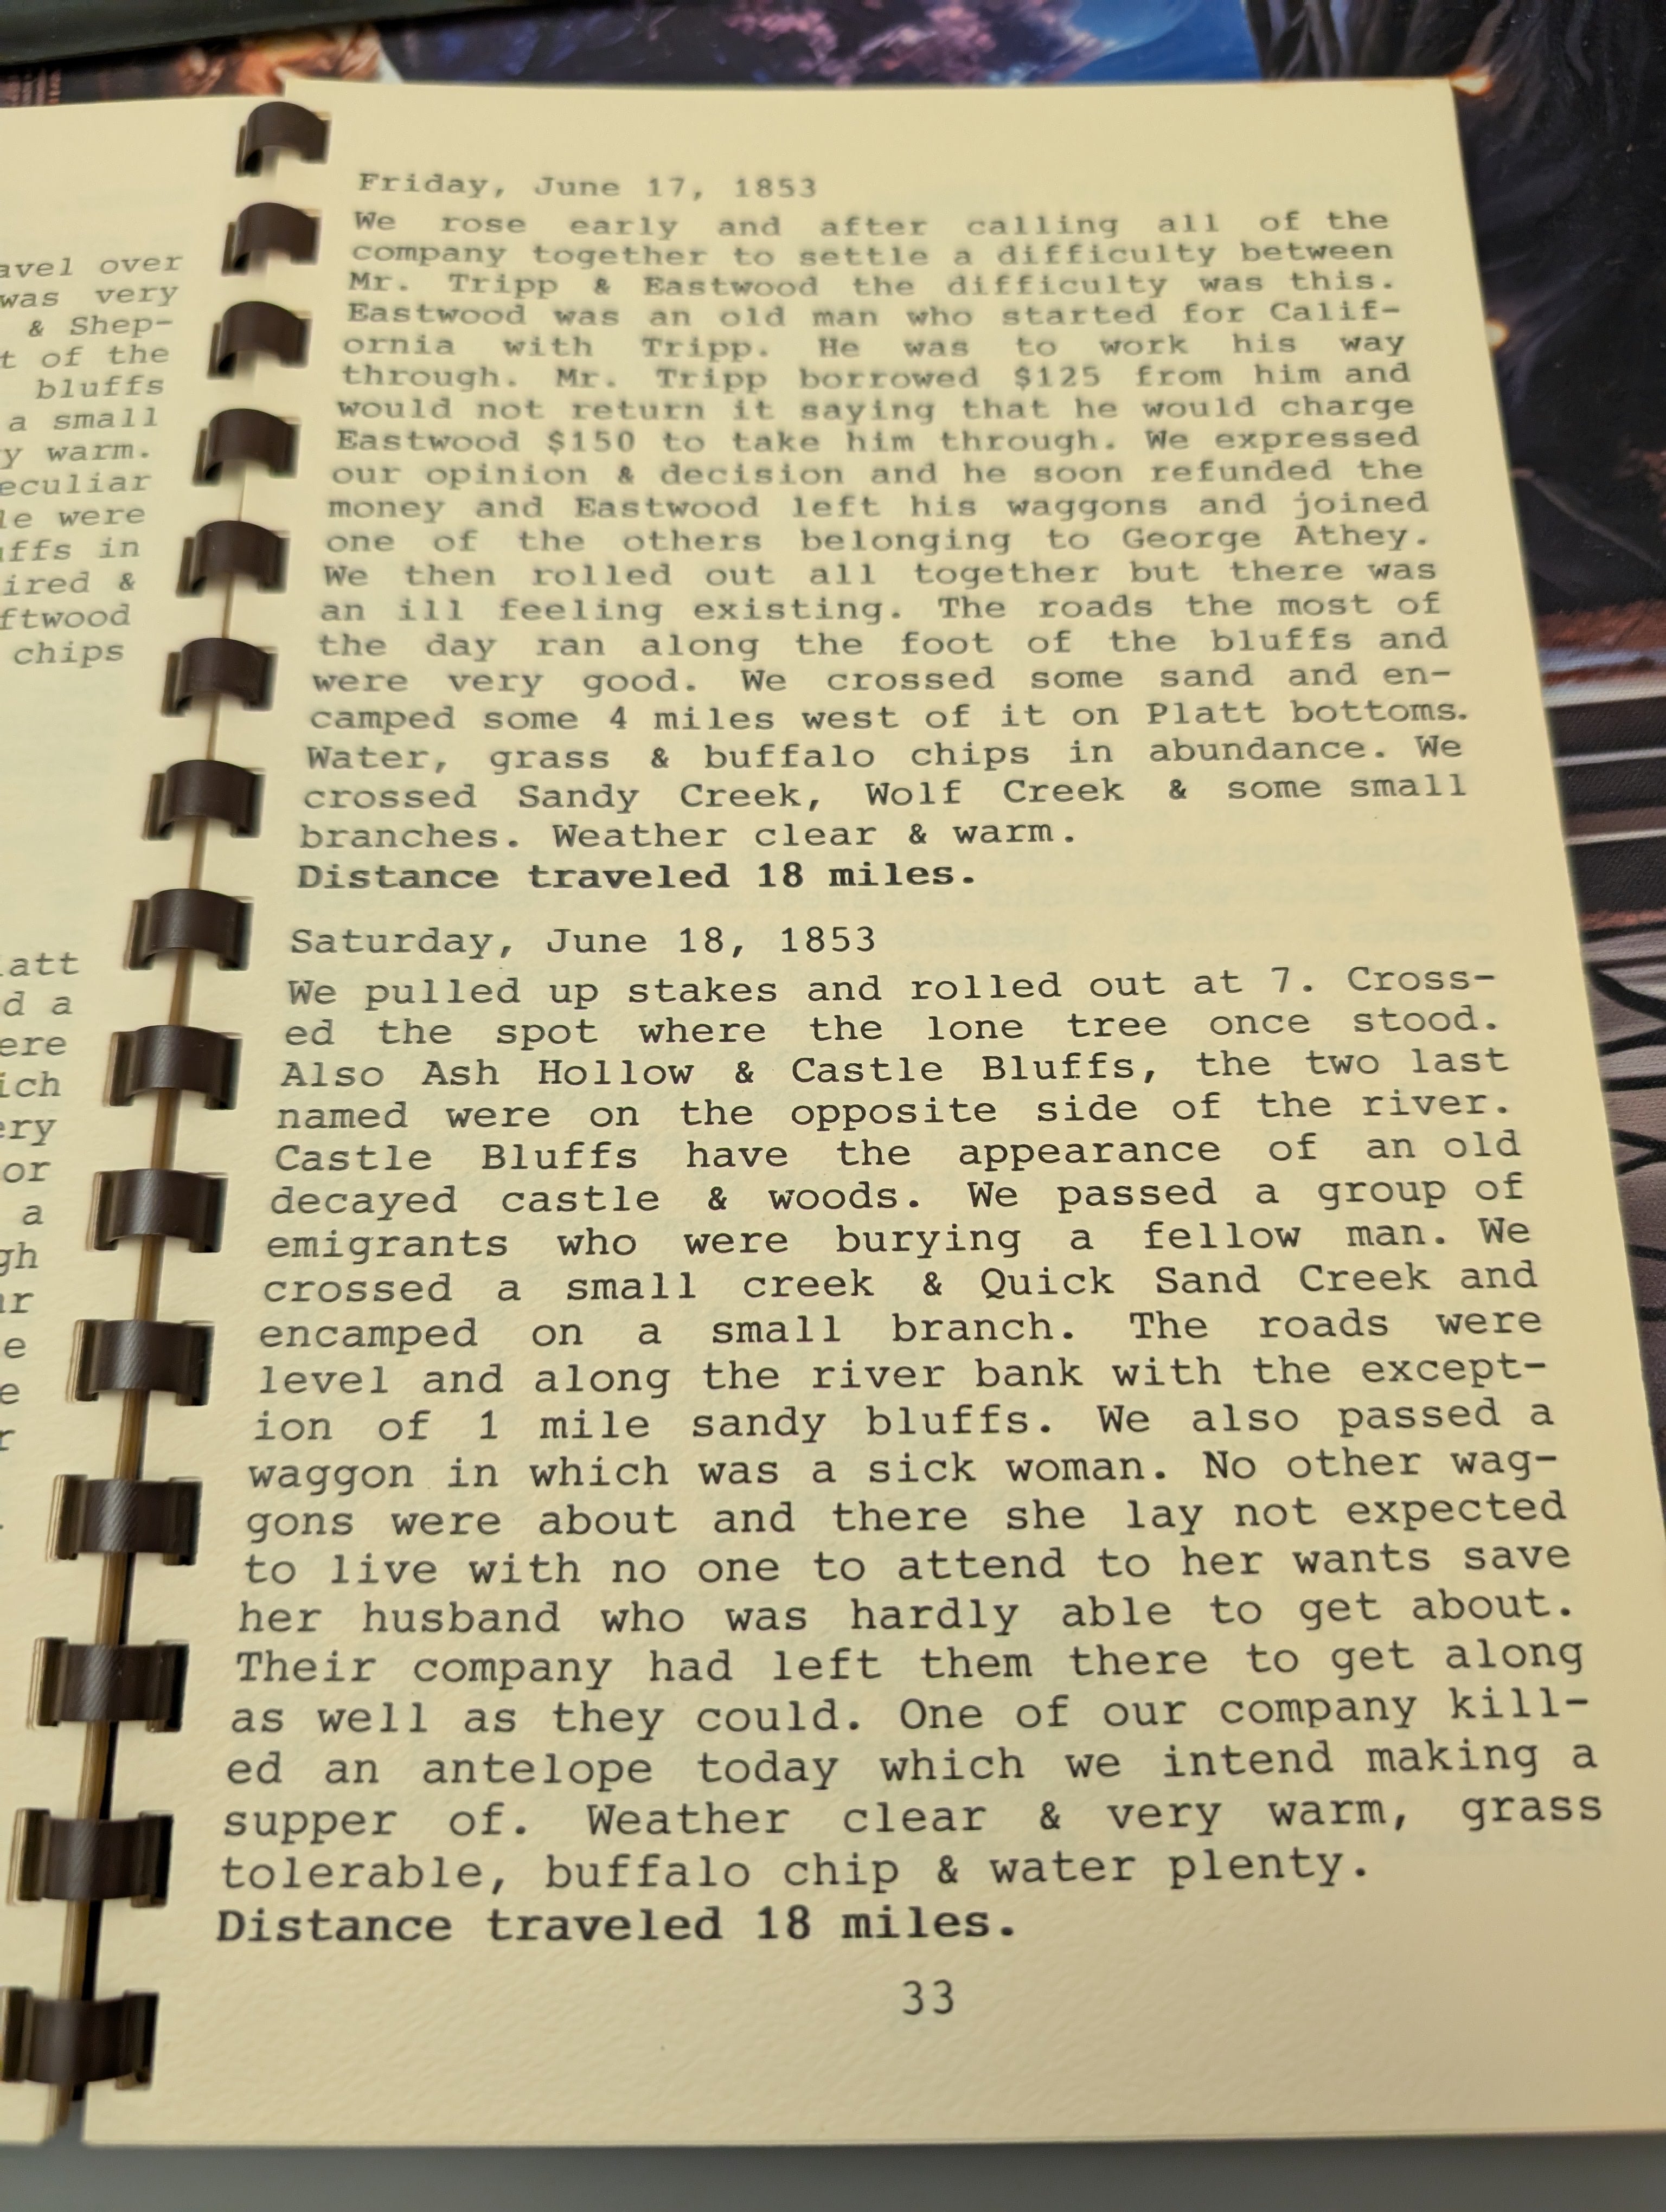 avel over
was very
& Shep-
t of the
bluffs
a small
y warm.
eculiar
le were
uffs in
ired &
ftwood
chips
latt
d a
ere
ich
ery
or
a
gh
ar
e
e
r
Friday, June 17, 1853
We rose early and after calling all of the
company together to settle a difficulty between
Mr. Tripp & Eastwood the difficulty was this.
Eastwood was an old man who started for Calif-
ornia with Tripp. He was to work his way
through. Mr. Tripp borrowed $125 from him and
would not return it saying that he would charge
Eastwood $150 to take him through. We expressed
our opinion & decision and he soon refunded the
money and Eastwood left his waggons and joined
one of the others belonging to George Athey.
We then rolled out all together but there was
an ill feeling existing. The roads the most of
the day ran along the foot of the bluffs and
were very good. We crossed some sand and en-
camped some 4 miles west of it on Platt bottoms.
Water, grass & buffalo chips in abundance. We
crossed Sandy Creek, Wolf Creek & some small
branches. Weather clear & warm.
Distance traveled 18 miles.
Saturday, June 18, 1853
We pulled up stakes and rolled out at 7. Cross-
ed the spot where the lone tree once stood.
Also Ash Hollow & Castle Bluffs, the two last
named were on the opposite side of the river.
Castle Bluffs have the appearance of an old
decayed castle & woods. We passed a group of
emigrants who were burying a fellow man. We
crossed a small creek & Quick Sand Creek and
encamped on a small branch. The roads were
level and along the river bank with the except-
ion of 1 mile sandy bluffs. We also passed a
waggon in which was a sick woman. No other wag-
gons were about and there she lay not expected
to live with no one to attend to her wants save
her husband who was hardly able to get about.
Their company had left them there to get along
as well as they could. One of our company kill-
ed an antelope today which we intend making a
supper of. Weather clear & very warm, grass
tolerable, buffalo chip & water plenty.
Distance traveled 18 miles.
33